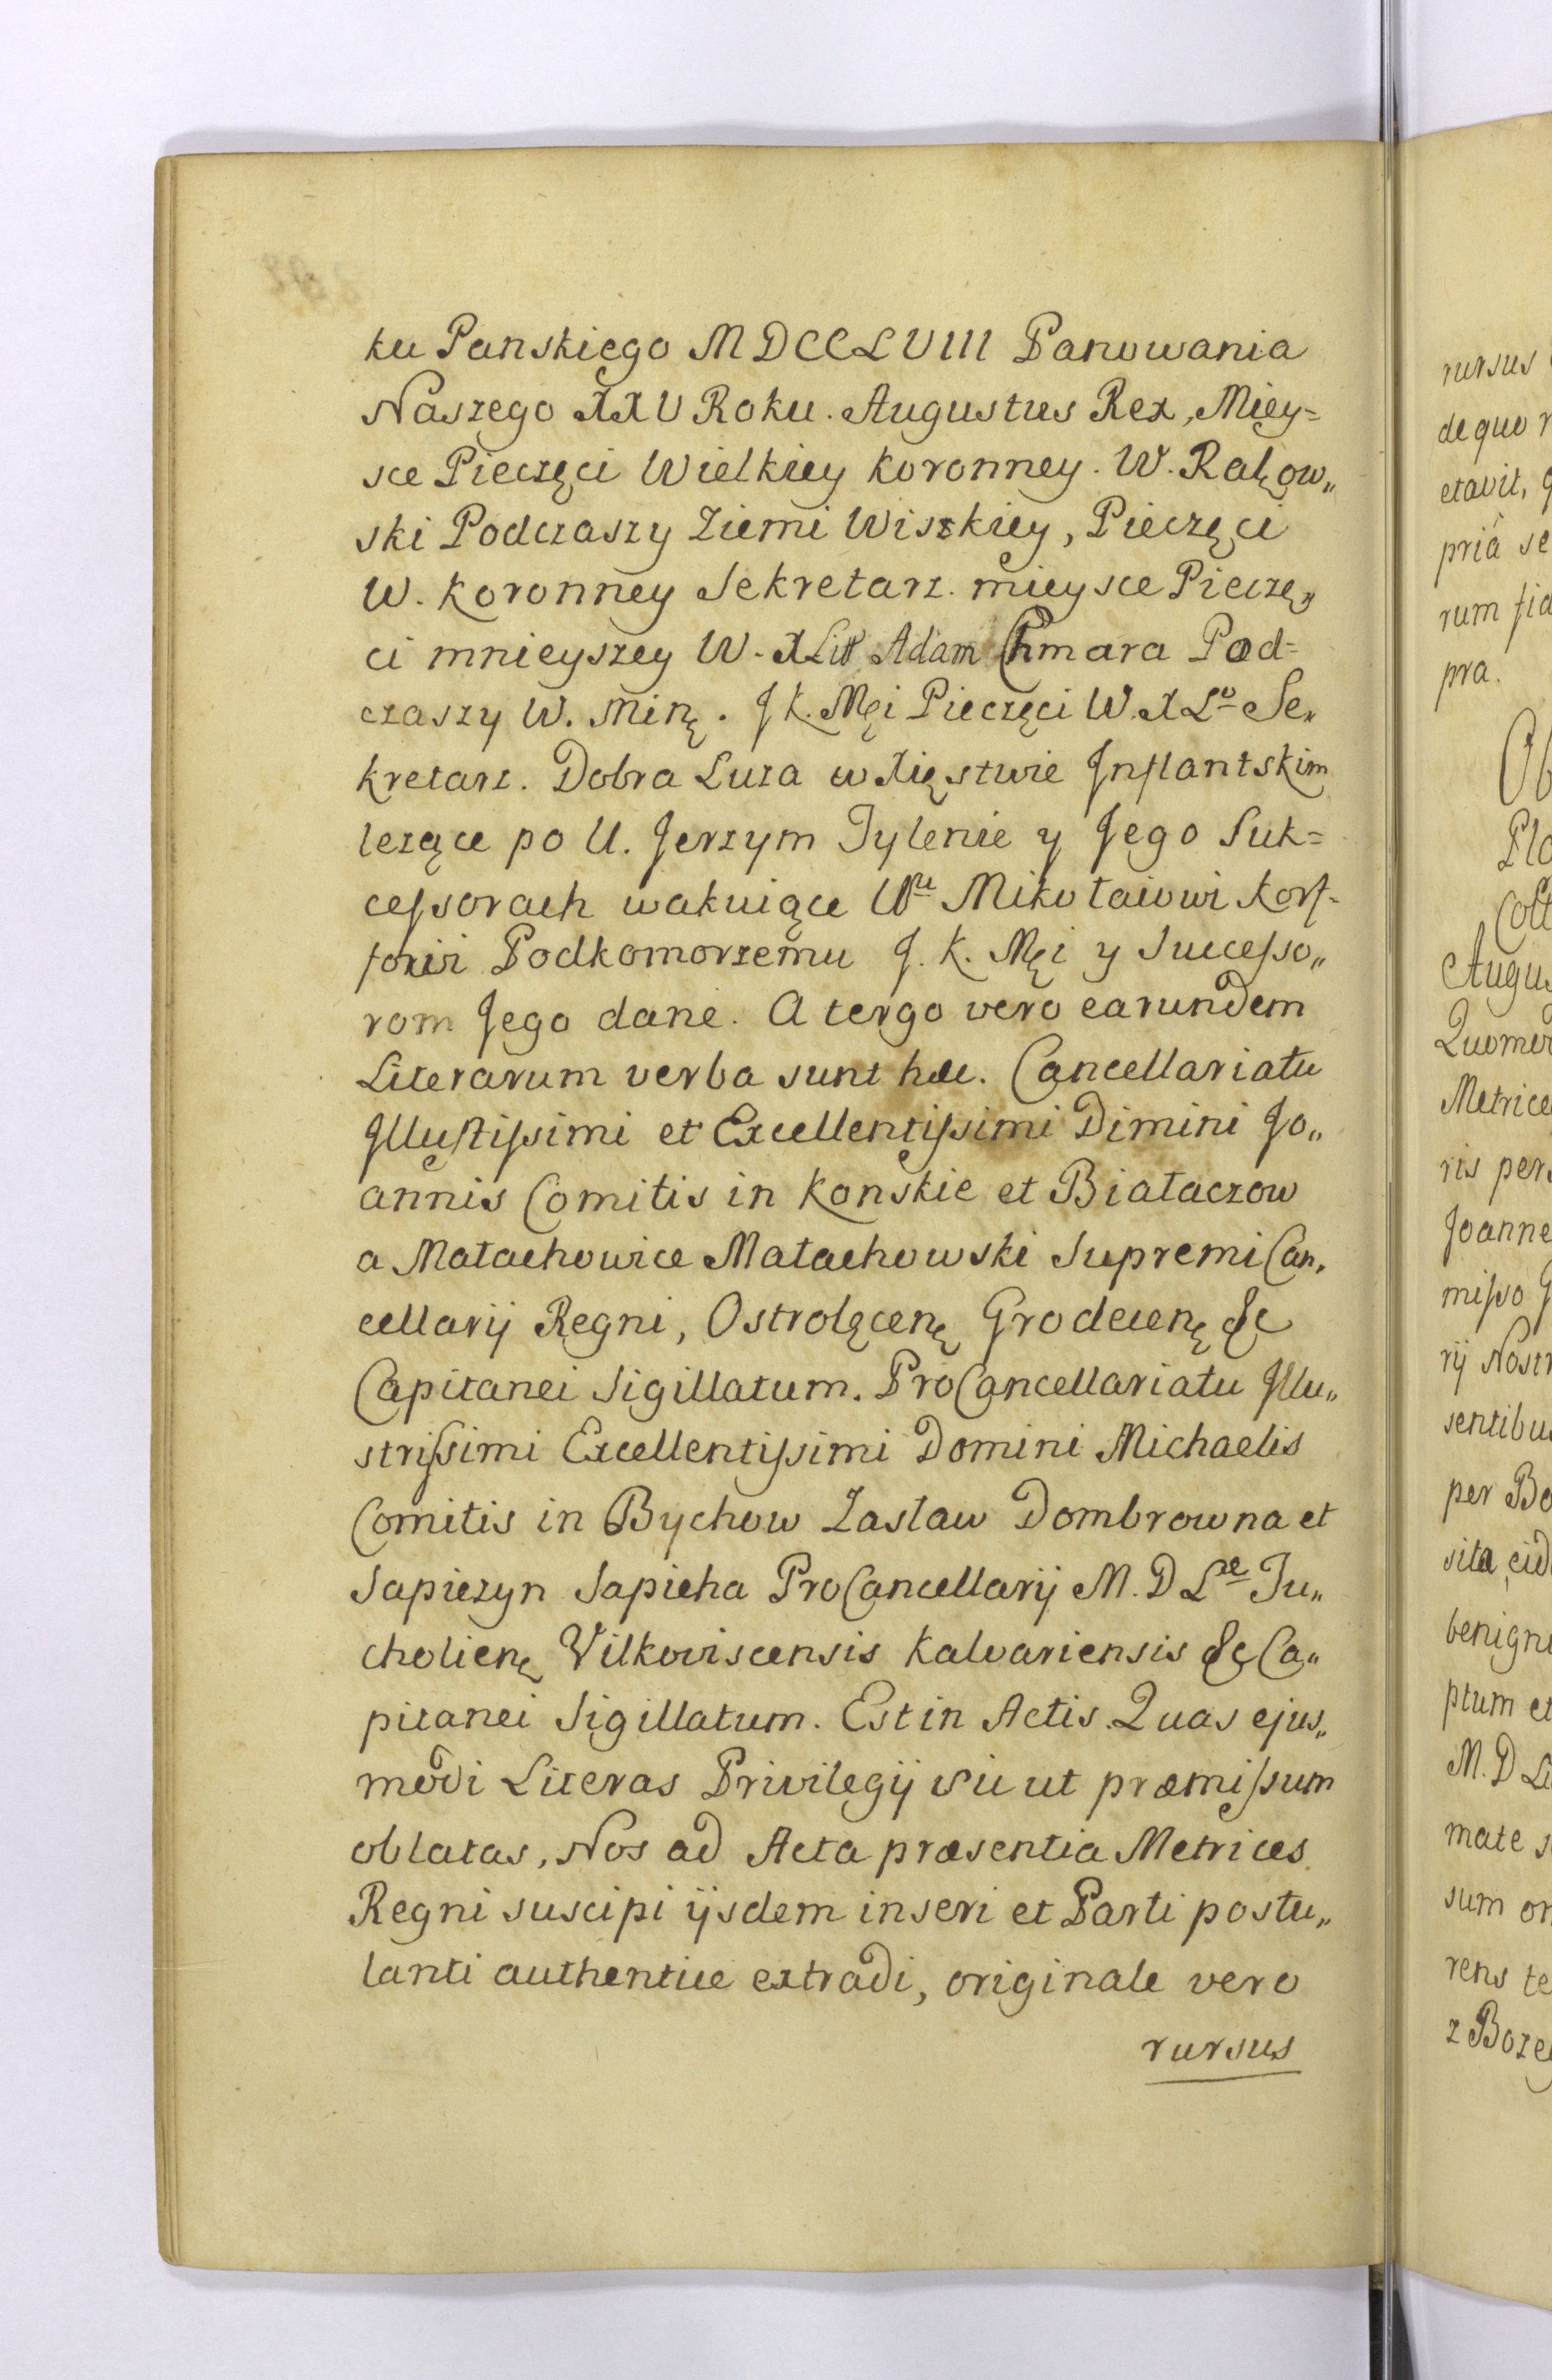 ku Panskiego MDCCLVIII Panowania
Naszego XXV Roku. Augustus Rex, Miey=
sce Pieczęci Wielkiey Koronney. W. Rałęow„
ski Podczaszy Ziemi Wiszkiey, Pieczęci
W. Koronney Sekretarz. mieysce Pieczę„
ci mnieyszey W. X Litt Adam Chmara Pod=
czaszy W. Minę. J K. Męi Pieczęci W. X Lo Se„
kretarz. Dobra Luza w Xięstwie Inflantskim
lezące po U. Jerzym Tylenie y Jego Suk=
cessorach wakuiące Uru Mikołaiowi Korf=
fowi Podkomorzemu J. K. Męi y Successo„
rom Jego dane. A tergo vero earundem
Literarum verba sunt hæc. Cancellariatu
Jllustissimi et Excellentissimi Dimini Jo„
annis Comitis in Konskie et Białaczow
a Małachowice Małachowski Supremi Can„
cellarij Regni, Ostrolęcenę Grodecenę &c
Capitanei Sigillatum. ProCancellariatu Jllu„
strissimi Excellentissimi Domini Michaelis
Comitis in Bychow Zaslaw Dombrowna et
Sapiezyn Sapieha ProCancellarij M. D Læ Tu„
cholienę Vilkoviscensis Kalvariensis &c Ca„
pitanei Sigillatum. Est in Actis. Quas ejus„
modi Literas Privilegij sic ut præmissum
oblatas, Nos ad Acta præsentia Metrices
Regni suscipi ijsdem inseri et Parti postu„
lanti authentice extradi, originale vero
rursus
rursus
de quo r
etavit,
priâ se
rum fid
pra.
Ob
Pla
Coll
Augus
Quomo
Metrice
ris per
Joanne
misso
rij Nostr
sentibu
per Bo
sita, eid
benign
ptum et
M. D Li
mate s
sum or
rens te
z Boze